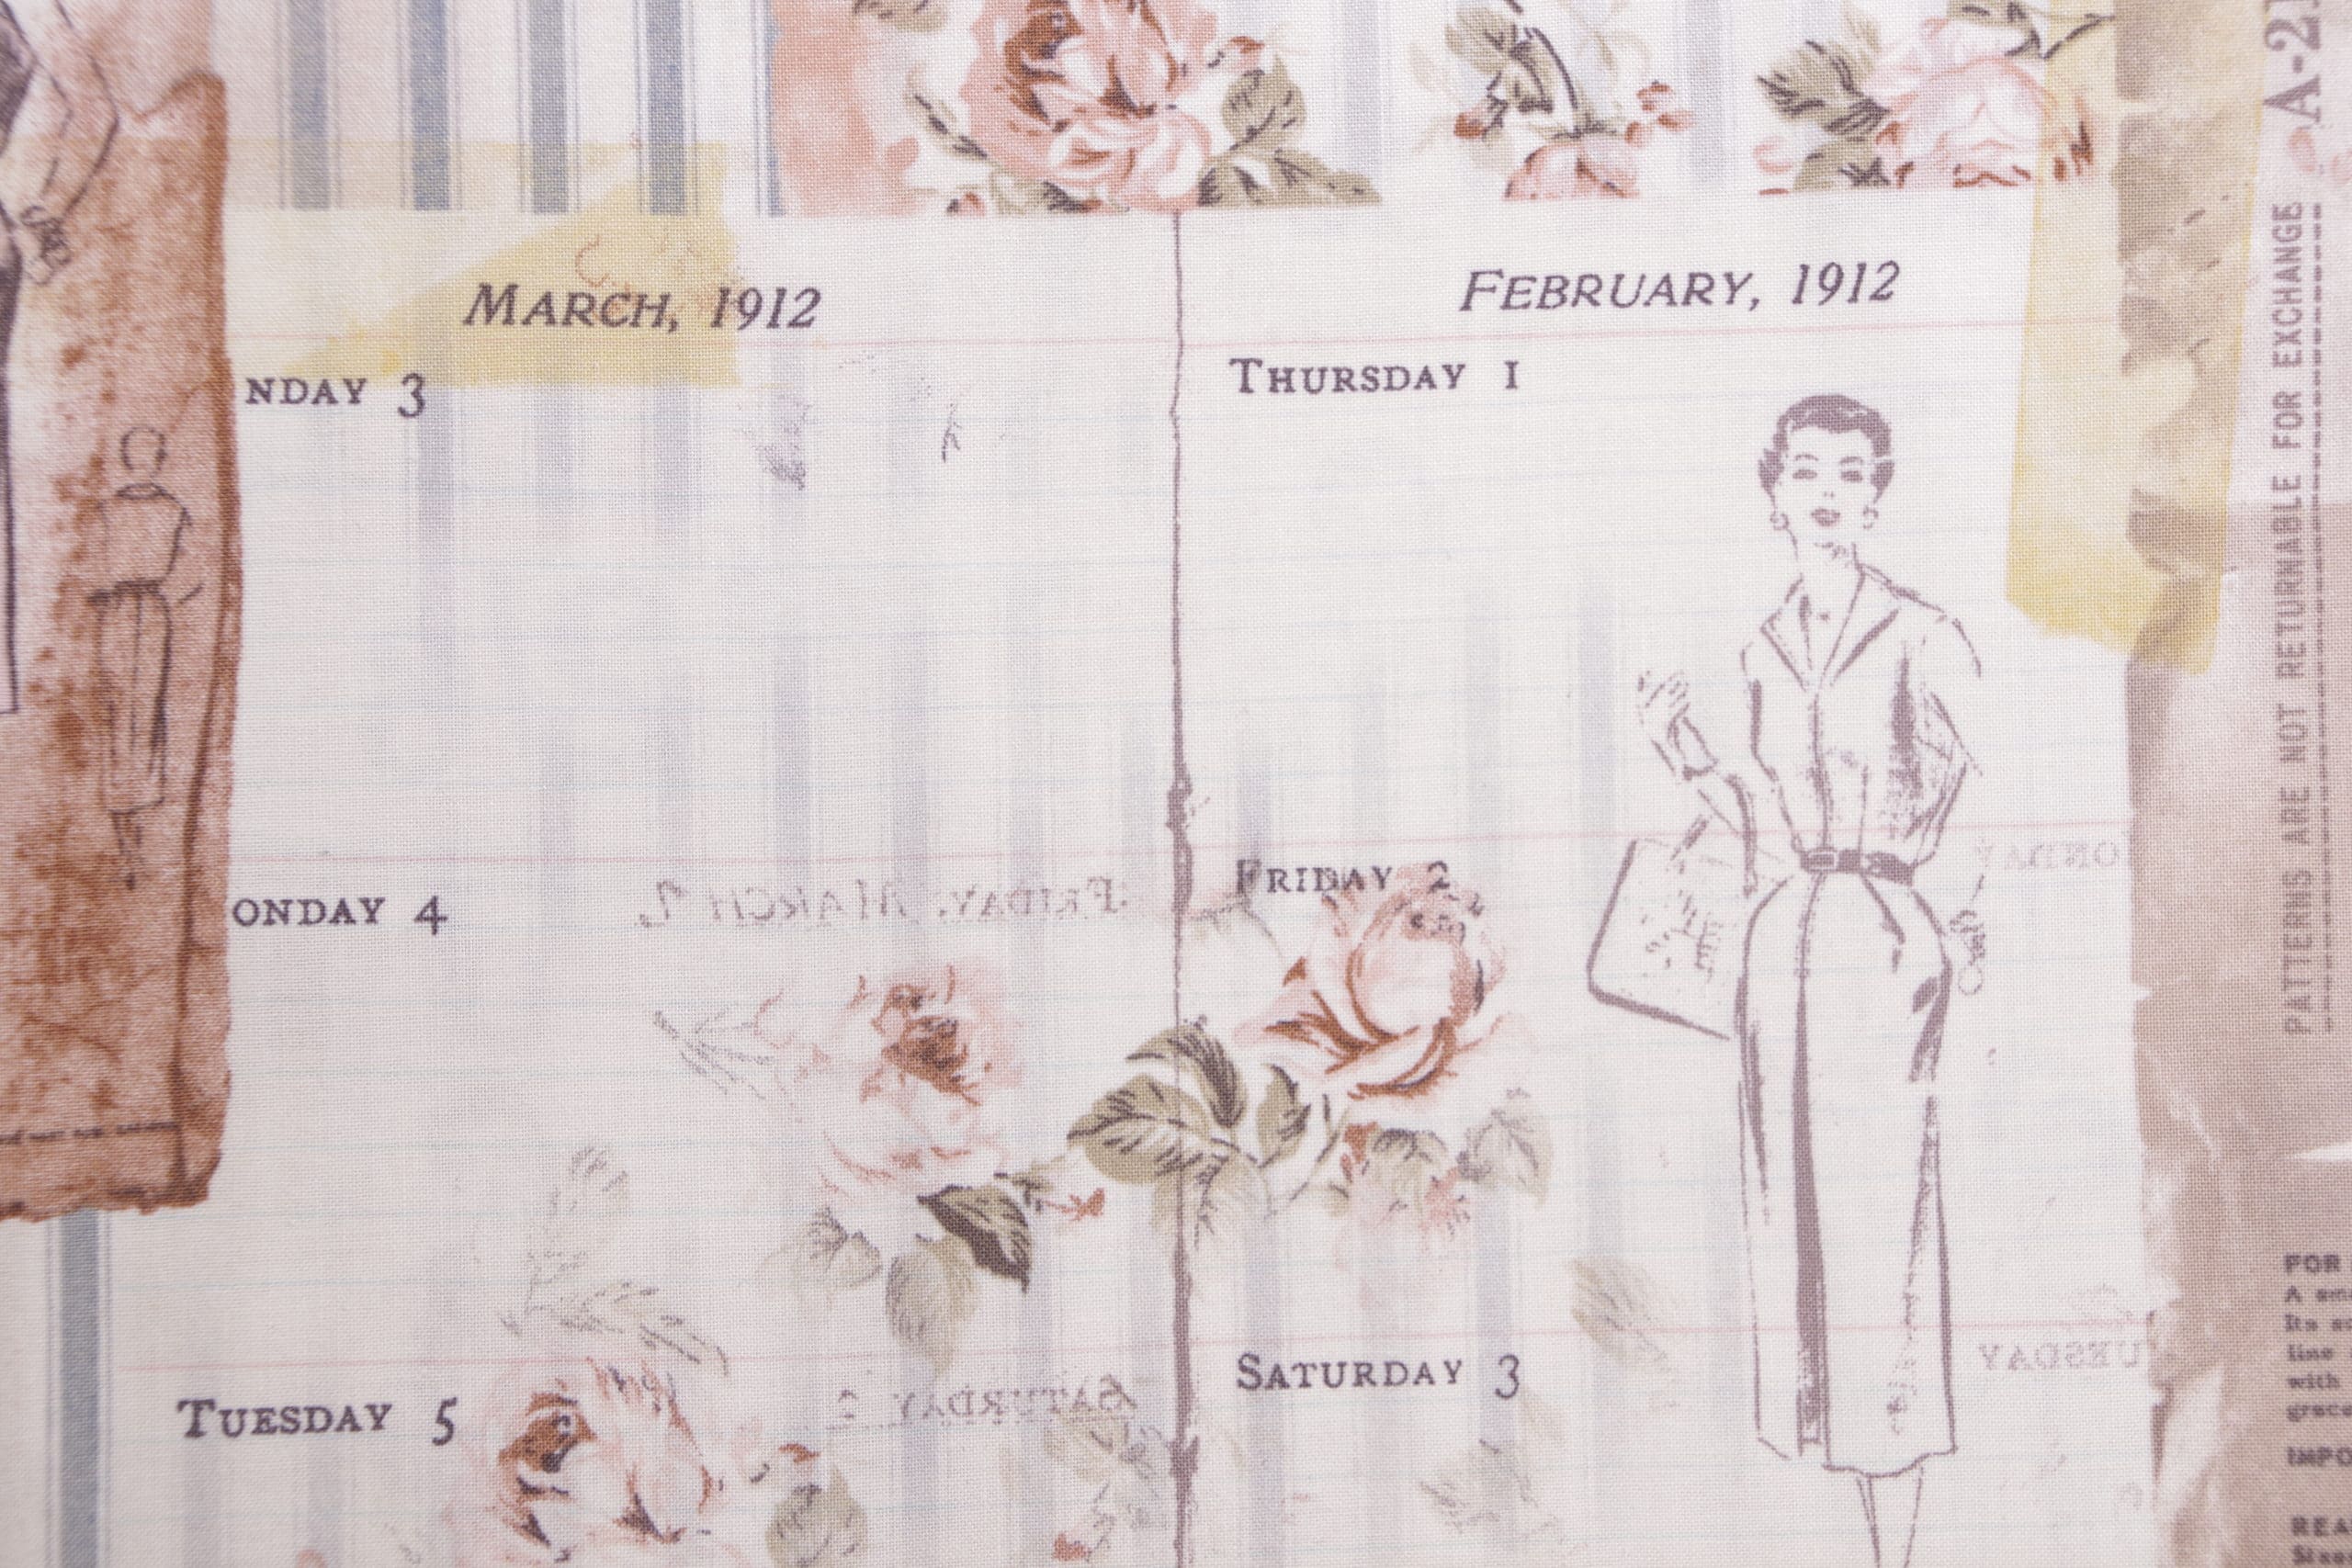 MARCH, 1912
NDAY 3
ONDAY 4
FRIDAY, MARCH
TUESDAY 5
SATURDAY 2
FEBRUARY, 1912
THURSDAY 1
FRIDAY 2
ONDAY
SATURDAY 3
UESDAY
A-2
PATTERNS ARE NOT RETURNABLE FOR EXCHANGE
FOR
A
Its
line
with
grace
IMPO
REA